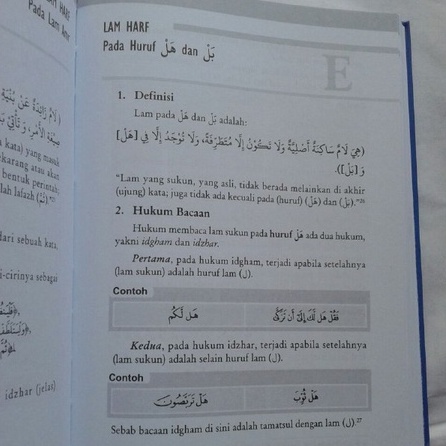 LAM HARF
Pada Lam Amr
صِيغَةِ الْأَمْرِ
kata) yang masuk
ekarang atau akan
bentuk perintah,
lah lafazh (ثُمَّ)
dari sebuah kata,
i-cirinya sebagai
idzhar (jelas)
LAM HARF
Pada Huruf هَلْ dan بَلْ
E
1. Definisi
Lam pada هَلْ dan بَلْ adalah:
(هِيَ لَامٌ سَاكِنَةٌ أَصْلِيَّةٌ وَلَا تَكُوْنُ إِلَّا مُتَطَرِّفَةً، وَلَا تُوْجَدُ إِلَّا فِي [هَلْ]
وَ [بَلْ]).
"Lam yang sukun, yang asli, tidak berada melainkan di akhir
(ujung) kata; juga tidak ada kecuali pada (huruf) (هَلْ) dan (بَلْ)."26
2. Hukum Bacaan
Hukum membaca lam sukun pada huruf هَلْ ada dua hukum,
yakni idgham dan idzhar.
Pertama, pada hukum idgham, terjadi apabila setelahnya
(lam sukun) adalah huruf lam (ل).
Contoh
فَقُلْ هَل لَّكَ إِلَىٰٓ أَن تَزَكَّىٰ هَل لَّكُم
Kedua, pada hukum idzhar, terjadi apabila setelahnya
(lam sukun) adalah selain huruf lam (ل).
Contoh
هَلْ ثُوِّبَ هَلْ تَرَبَّصُونَ
Sebab bacaan idgham di sini adalah tamatsul dengan lam (ل).27